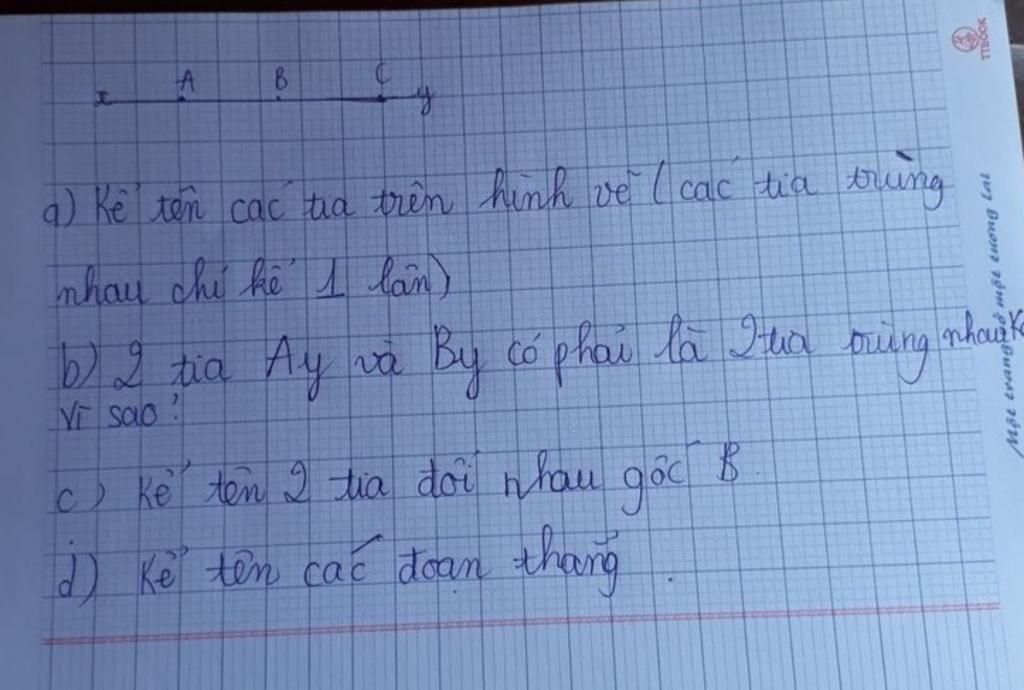 TTBOOK
A B C
x y
a) Kể tên các tia trên hình vẽ (các tia trùng
nhau chỉ kể 1 lần)
b) 2 tia Ay và By có phải là 2 tia trùng nhau k
vì sao?
c) Kể tên 2 tia đối nhau gốc B.
d) Kể tên các đoạn thẳng.
Một trang vở một tương lai